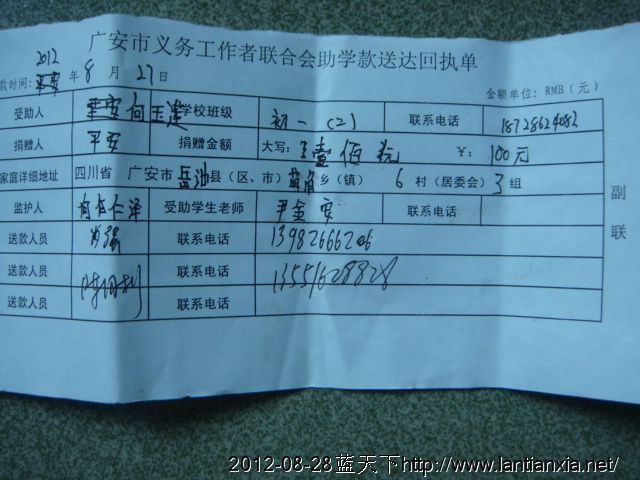 广安市义务工作者联合会助学款送达回执单
款时间: 2012 年 8 月 27 日 金额单位: RMB（元）
受助人 何玉莲 学校班级 初一（2） 联系电话 18728624082
捐赠人 平安 捐赠金额 大写: 壹佰元 ¥: 100元
家庭详细地址 四川省 广安市 岳池 县（区、市） 乡（镇） 6 村（居委会） 3 组
监护人 受助学生老师 尹金安 联系电话
送款人员 联系电话 13982666206
送款人员 联系电话 13551628828
送款人员 联系电话
副联
2012-08-28蓝天下http://www.lantianxia.net/